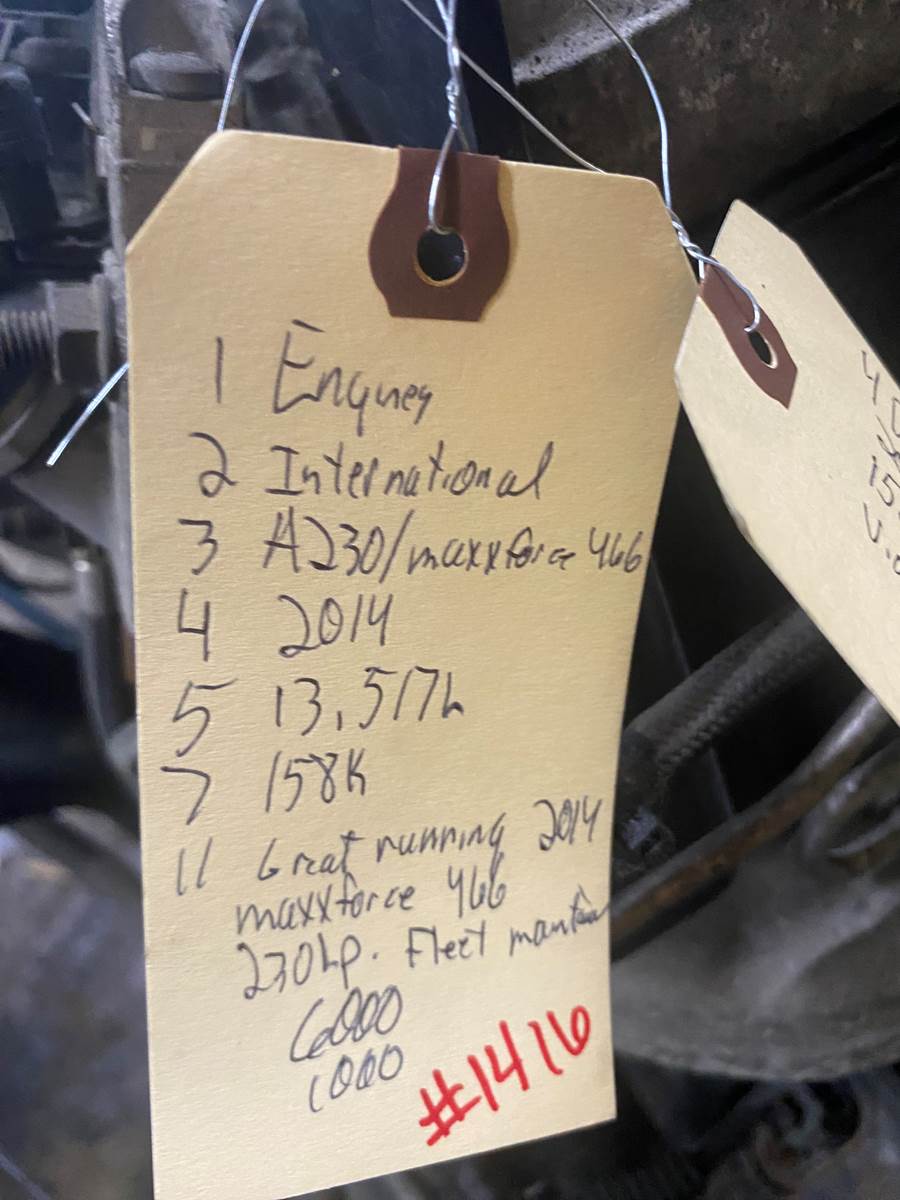 1 Engines
2 International
3 A230/maxxforce 466
4 2014
5 13,517h
7 158K
11 Great running 2014
maxxforce 466
230hp. Fleet
6000
1000
#1416
4
15